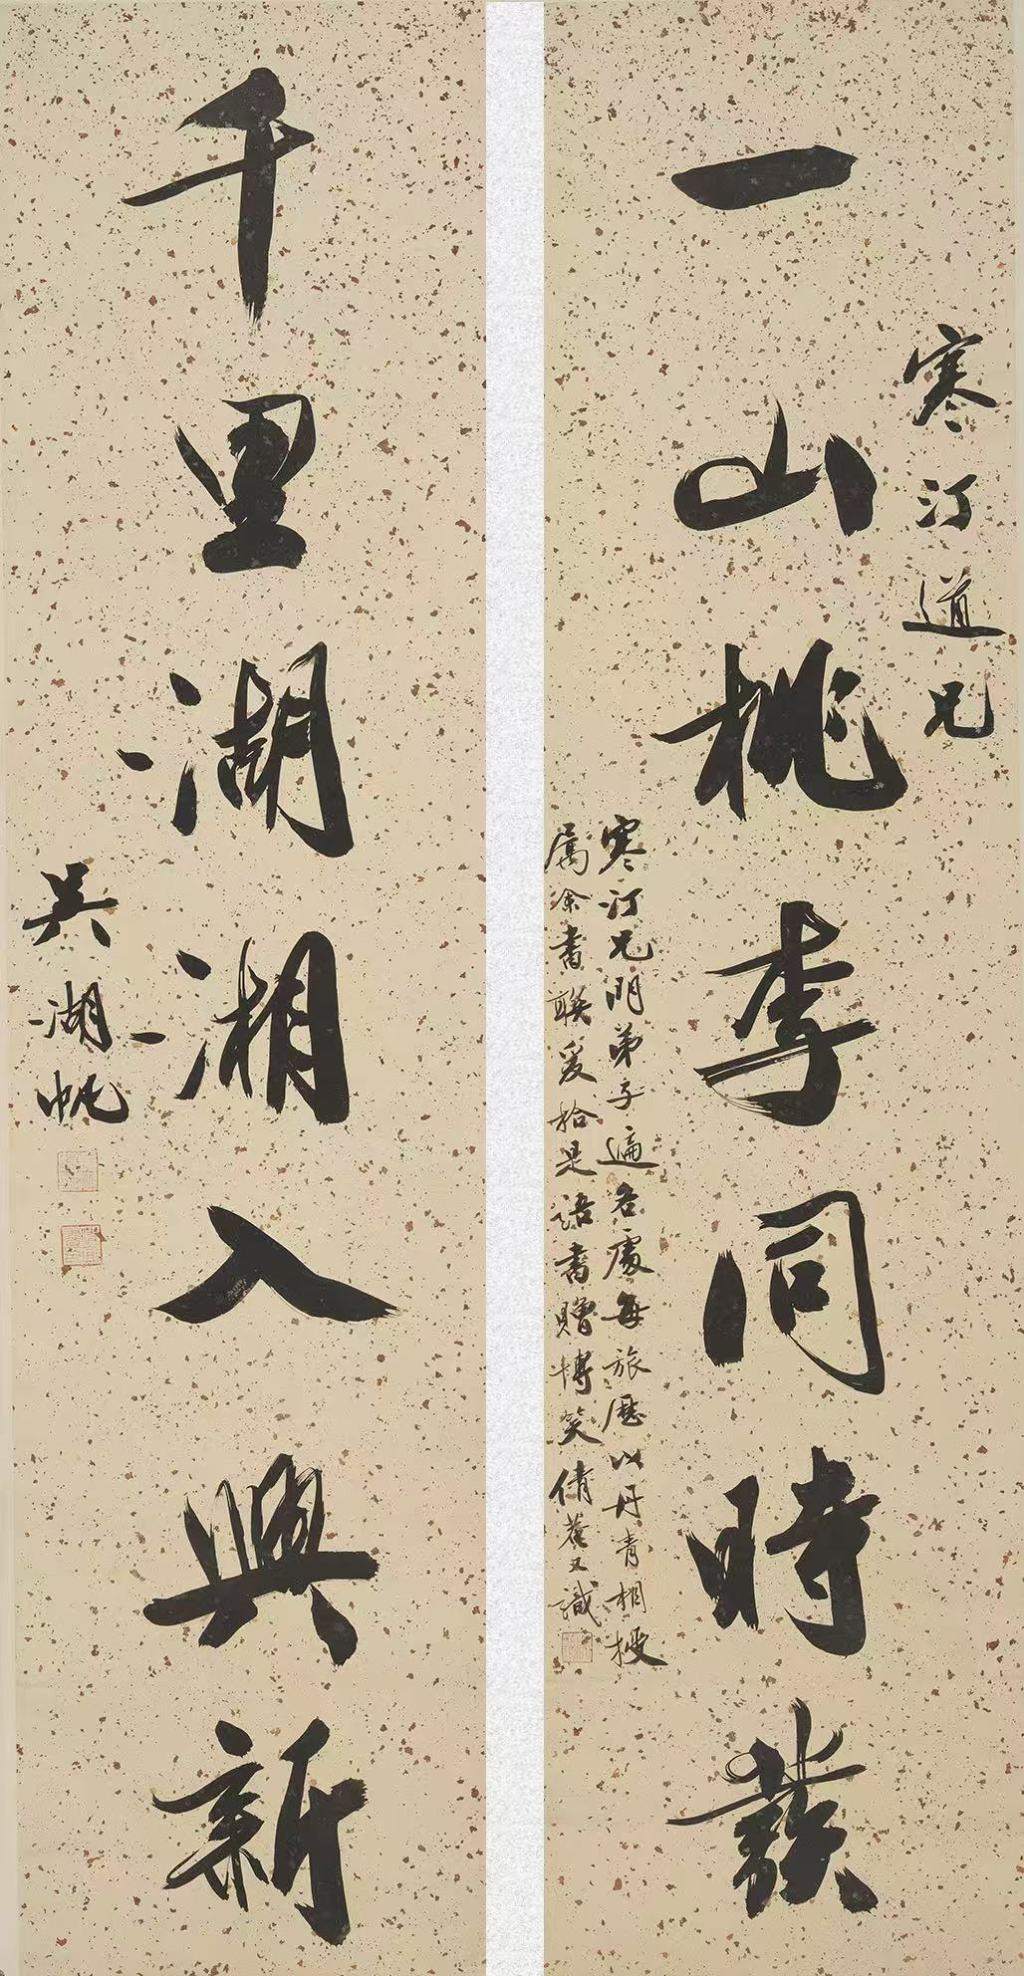 寒汀道兄
一山桃李同時發
寒汀兄門弟子遍各處每旅歷以丹青相授
属余書聯爰拾是語書贈博笑倩菴又識
千里湖湘入興新
吴湖帆